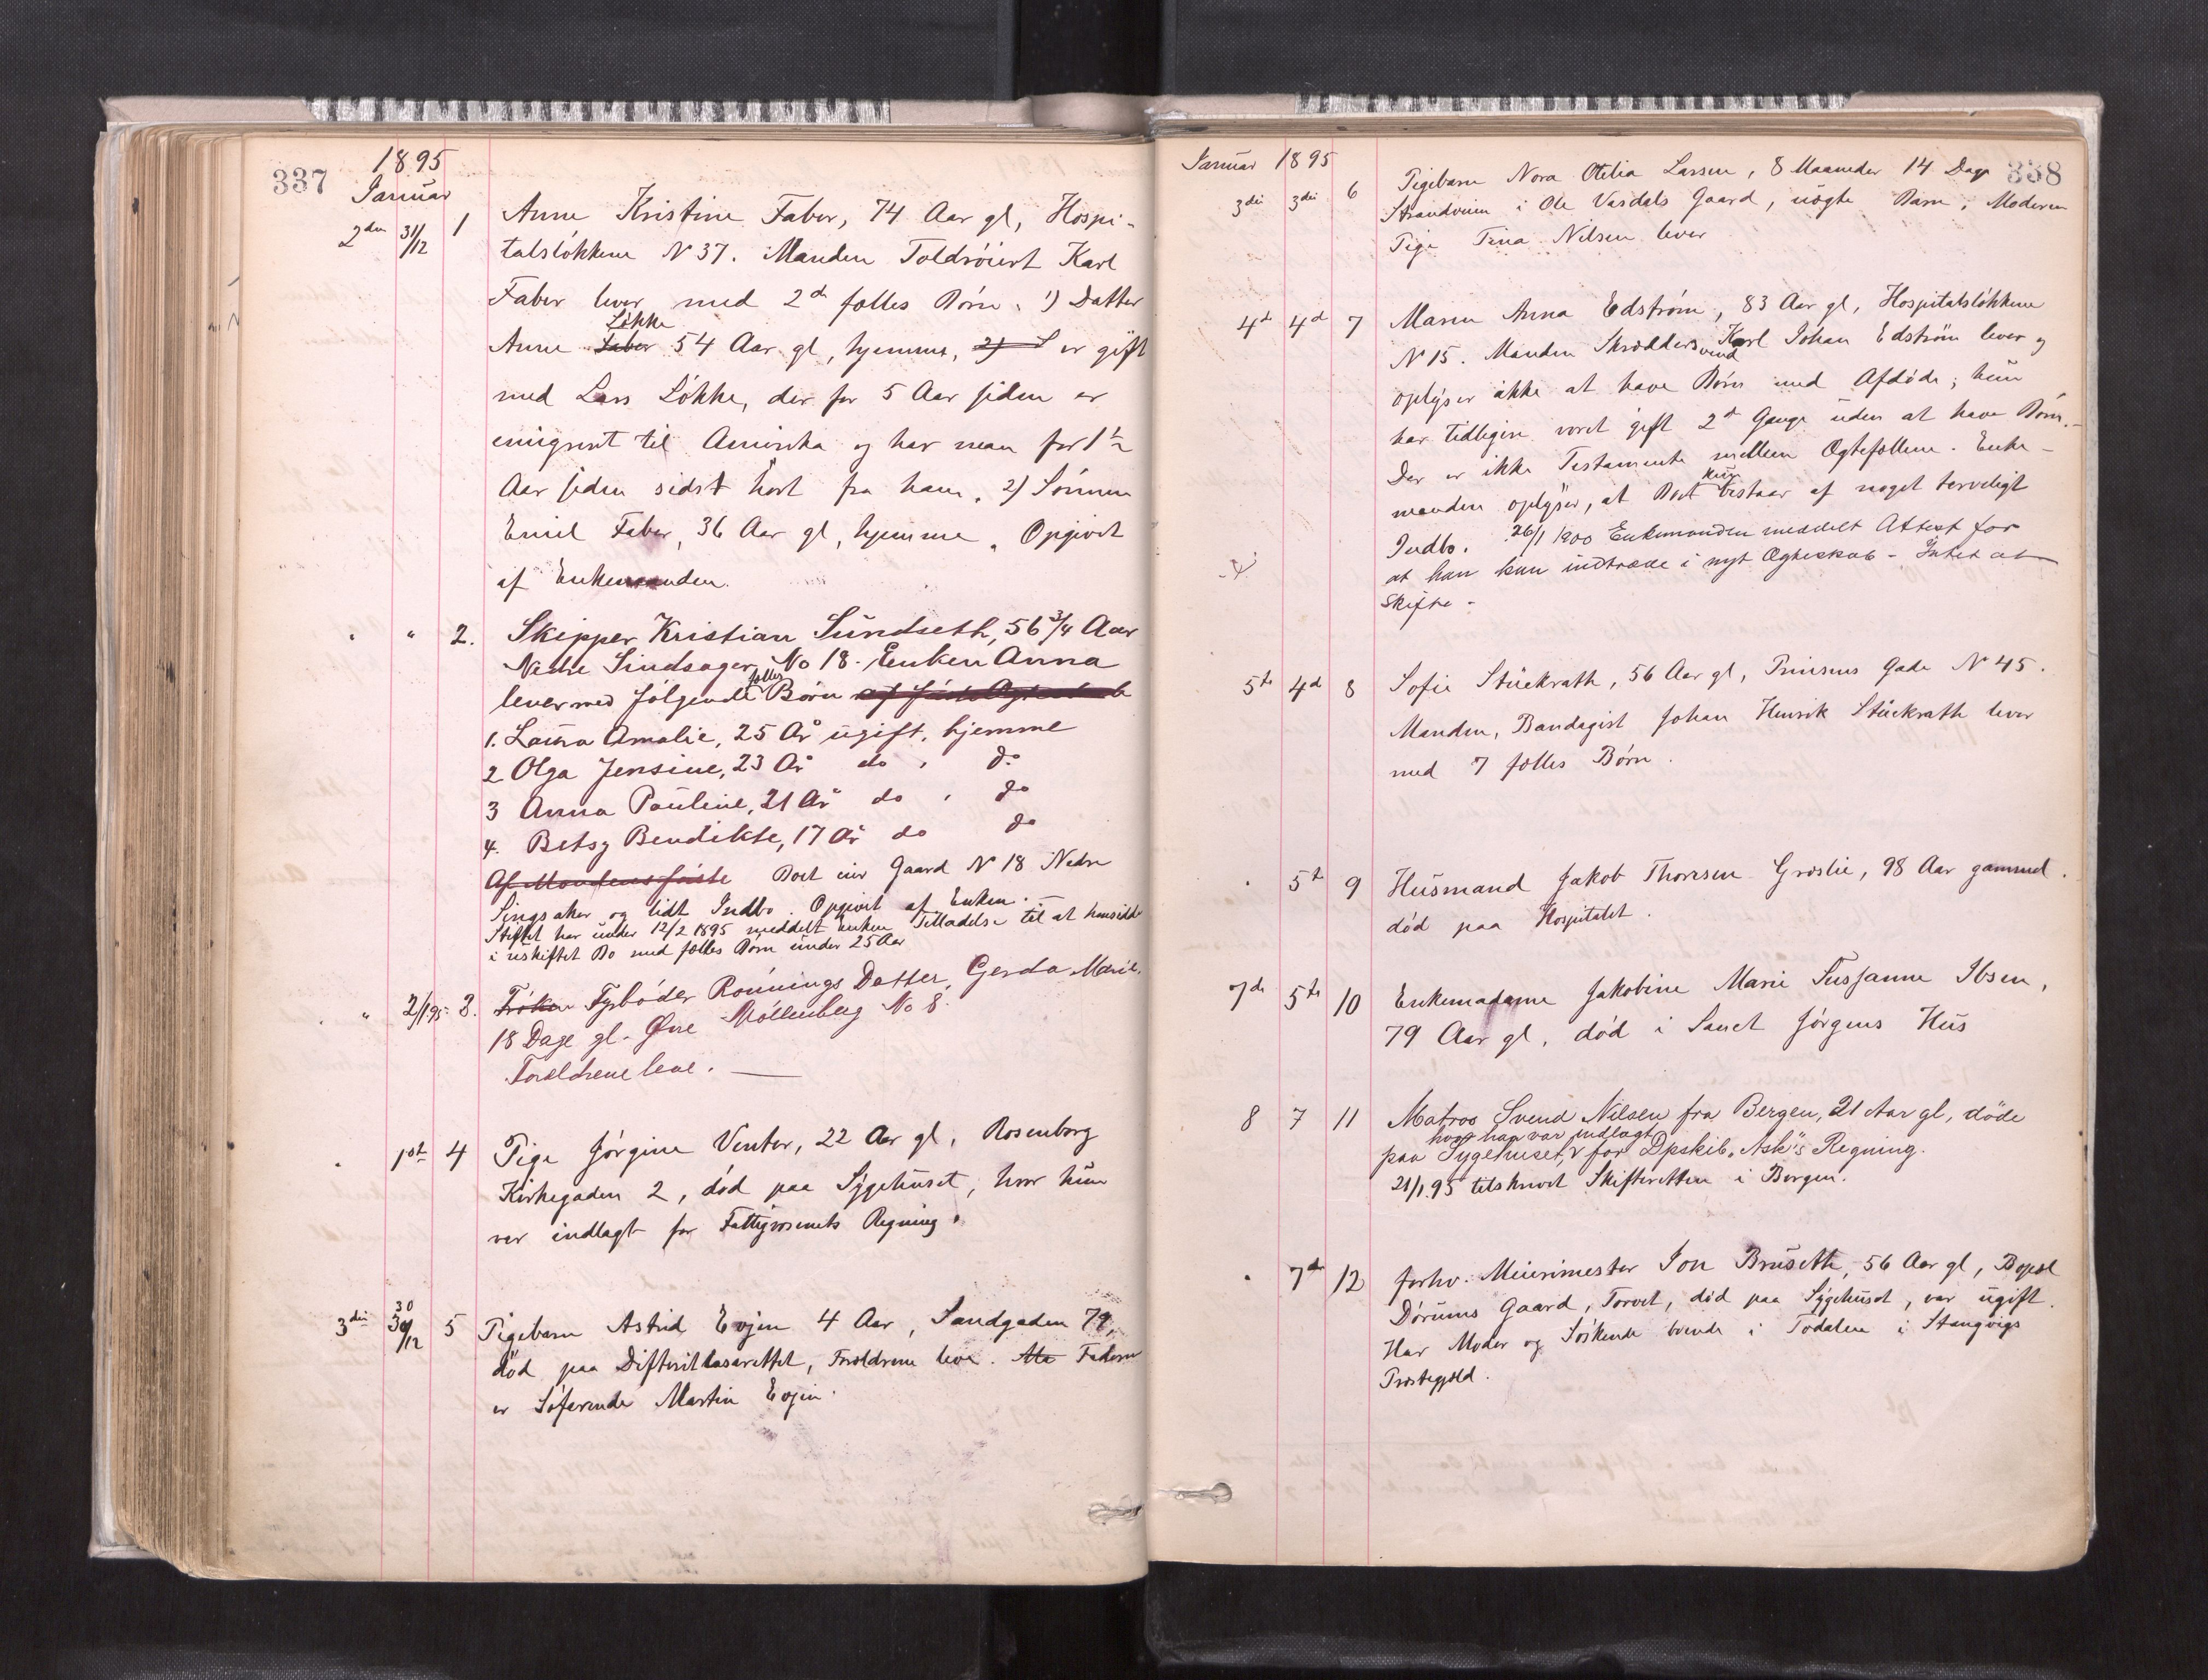 337
1895
Januar
2den 31/12 1 Anne Kristine Faber, 74 Aar gl, Hospi-
talsløkkene N 37. Manden Toldrøiert Karl
Faber lever med 2de fælles Børn: 1) Datter
Løkke
Anne Faber 54 Aar gl, hjemme, 2) S er gift
med Lars Løkke, der for 5 Aar siden er
emigreret til Amerika og har man for 1½
Aar siden sidst hørt fra ham, 2) Sønnen
Emil Faber, 36 Aar gl, hjemme. Opgivet
af Enkemanden.
" " 2. Skipper Kristian Sundseth, 56 3/4 Aar
Nedre Sindsager No 18. Enken Anna
fælles
lever med følgende Børn af første Ægteskab
1. Laura Amalie, 25 År ugift, hjemme
2 Olga Jensine, 23 År do , do
3 Anna Pauline, 21 År do , do
4. Betsy Bendikte, 17 År do do
Af Mandens første Boet eier Gaard N 18 Nedre
Singsaker og lidt Indbo. Opgivet af Enken.
Stiftet har under 12/2 1895 meddelt Enken Tilladelse til at hensidde
i uskiftet Bo med fælles Børn under 25 Aar
" 2/1 95 3. Frøken Fyrbøder Rønnings Datter, Gerda Marie,
18 Dage gl. Øvre Møllenberg No 8.
Forældrene leve.
" 1ste 4 Pige Jørgine Venter, 22 Aar gl, Rosenborg
Kirkegaden 2, død paa Sygehuset, hvor hun
var indlagt for Fattigvæsenets Regning.
3die 30/12 5 Pigebarn Astrid Evjen 4 Aar, Sandgaden 79,
død paa Difteritlasarettet, Forældrene leve. Ale Faderen
er Søfarende Martin Evjen.
Januar 1895
338
3die 3die 6 Pigebarn Nora Otilia Larsen, 8 Maaneder 14 Dage
Strandveien i Ole Vasdals Gaard, uægte Barn; Moderen
Pige Tina Nilsen lever
4de 4de 7 Maren Anna Edstrøm, 83 Aar gl, Hospitalsløkkene
N 15. Manden Skræddersvend Karl Johan Edstrøm lever og
oplyser ikke at have Børn med Afdøde; hun
har tidligere været gift 2de Gange uden at have Børn.
Der er ikke Testamente mellem Ægtefællene. Enke-
kun
manden oplyser, at Boet bestaar af noget tarveligt
Indbo. 26/1 1900 Enkemanden meddelt Attest for
at han kan indtræde i nyt Ægteskab - Intet at
skifte -
5te 4de 8 Sofie Stückrath, 56 Aar gl, Prinsens Gade N 45.
Manden, Bandagist Johan Henrik Stückrath lever
med 7 fælles Børn.
" 5te 9 Husmand Jakob Thoresen Græslie, 98 Aar gammel.
død paa Hospitalet.
7de 5te 10 Enkemadame Jakobine Marie Susanne Ibsen,
79 Aar gl, død i Sanct Jørgens Hus
8 7 11 Matros Svend Nilsen fra Bergen, 21 Aar gl, døde
hvor han var indlagt
paa Sygehuset, for Dpskib "Ask"s Regning.
21/1 95 tilskrevet Skifteretten i Bergen.
" 7de 12 forhv. Meierimester Jon Brusethe, 56 Aar gl, Bopæl
Dørums Gaard, Torvet, død paa Sygehuset, var ugift.
Har Moder og Søskende boende i Todalen i Stangvigs
Præstegjæld.